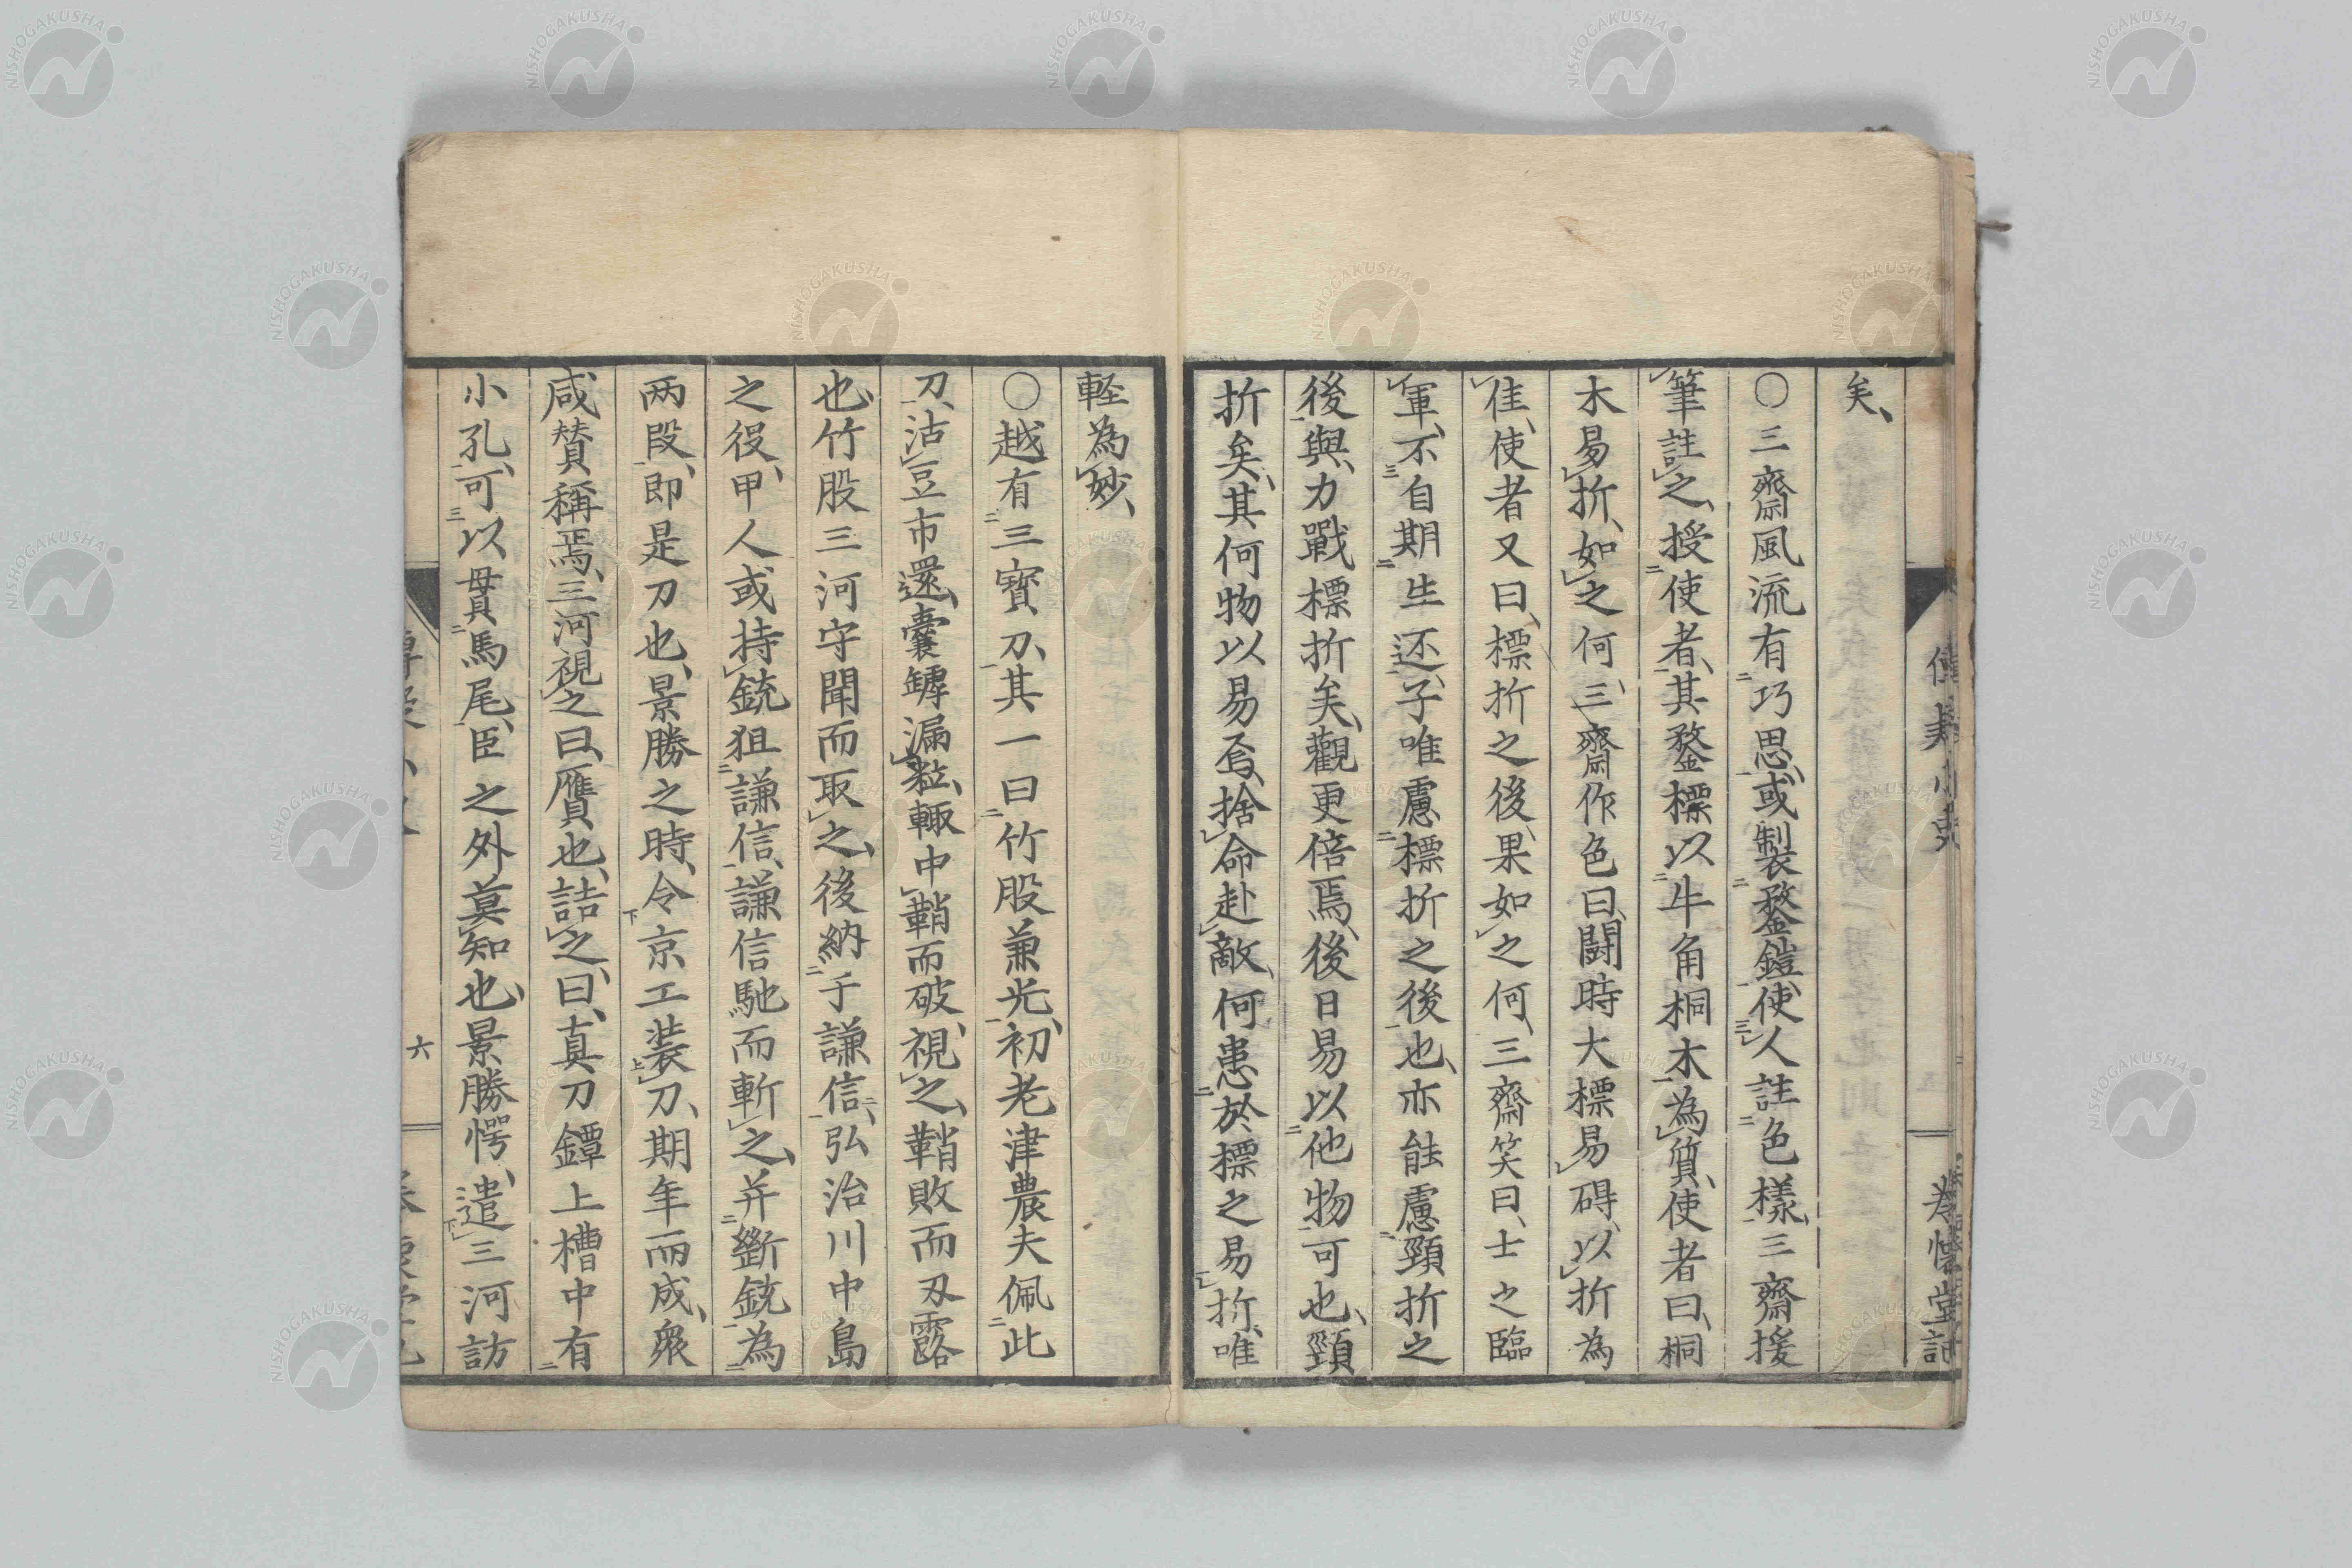 矣、
〇三齋風流有巧思、或製鍪鎧、使人註色樣、三齋援
筆註之、授使者、其鍪標以牛角桐木為質、使者曰、桐
木易折、如之何、三齋作色曰、鬪時大標易碍、以折為
佳、使者又曰、標折之後、果如之何、三齋笑曰、士之臨
軍、不自期生还、子唯慮標折之後也、亦能慮頸折之
後與、力戰標折矣、觀更倍焉、後日易以他物可也、頸
折矣、其何物以易焉、捨命赴敵、何患於標之易折、唯
軽為妙、
〇越有三寶刀、其一曰竹股兼光、初老津農夫佩此
刀、沽豆市還、囊罅漏粒、輙中鞘而破、視之、鞘敗而刄露
也、竹股三河守聞而取之、後納于謙信、弘治川中島
之役、甲人或持銃狙謙信、謙信馳而斬之、并斷銃為
两段、即是刀也、景勝之時、令京工装刀、期年而成、衆
咸賛稱焉、三河視之曰、贋也、詰之曰、真刀鐔上槽中有
小孔、可以貫馬尾、臣之外莫知也、景勝愕、遣三河訪
六
NISHOGAKUSHA